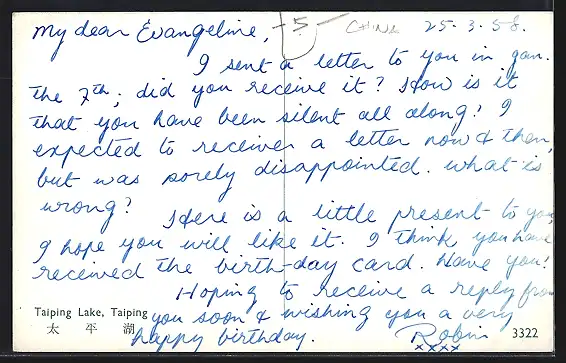 My dear Evangeline, -5 CHINA 25. 3. 58.
I sent a letter to you in Jan.
the 7th; did you receive it? How is it
that you have been silent all along! I
expected to receiver a letter now & then,
but was sorely disappointed. What is
wrong? Here is a little present to you,
I hope you will like it. I think you have
received the birth-day card. Have you!
Hoping to receive a reply from
you soon & wishing you a very
happy birthday. Robin
xxxx
Taiping Lake, Taiping
太 平 湖
3322